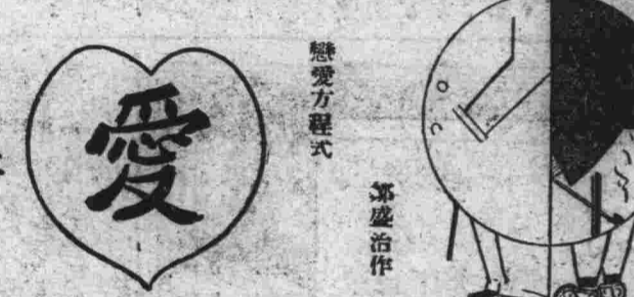 戀愛方程式
郭盛治作
愛